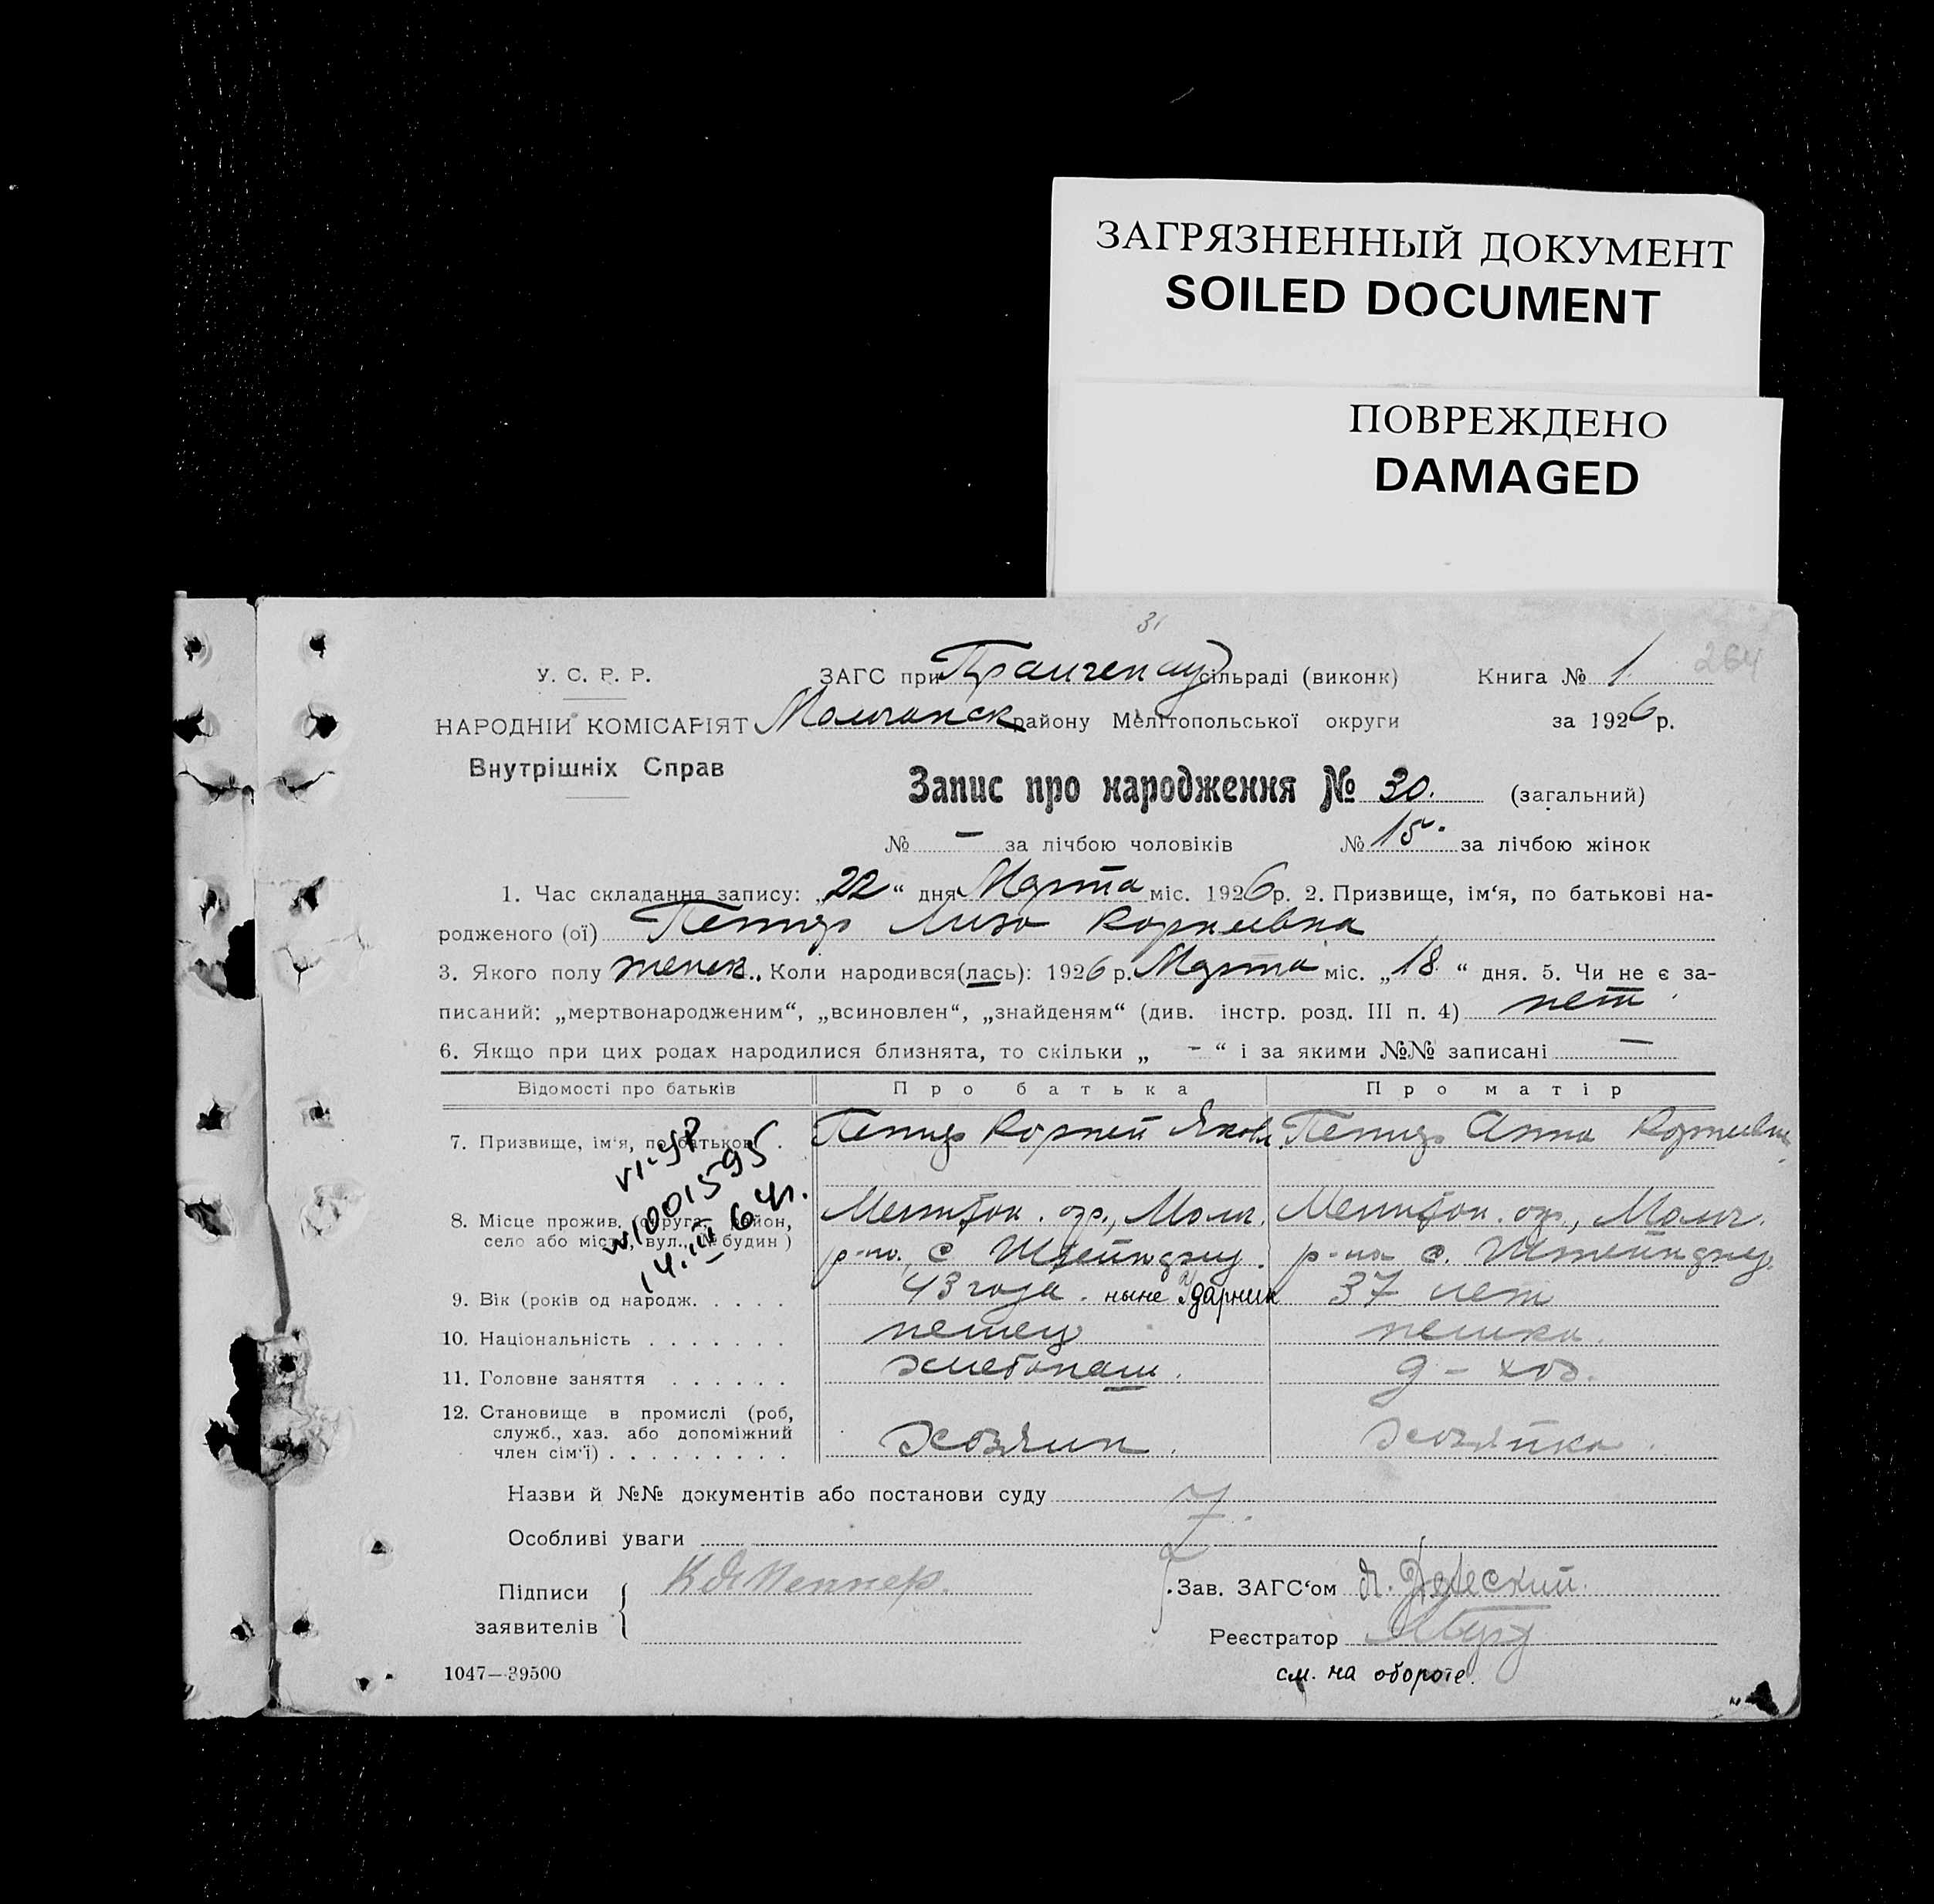 ЗАГРЯЗНЕННЫЙ ДОКУМЕНТ
SOILED DOCUMENT
ПОВРЕЖДЕНО
DAMAGED
31
264
У. С. Р. Р.
ЗАГС при Прангенау сільраді (виконк)
Книга № 1
НАРОДНІЙ КОМІСАРІЯТ
Молочанск району Мелітопольської округи
за 1926 р.
Внутрішніх Справ
Запис про народження № 30. (загальний)
№ – за лічбою чоловіків № 15. за лічбою жінок
1. Час складання запису: „22“ дня Марта міс. 1926 р. 2. Призвище, ім‘я, по батькові на-
родженого (ої) Пеннер Лиза Корнеевна
3. Якого полу женск. Коли народився(лась): 1926 р. Марта міс. „18“ дня. 5. Чи не є за-
писаний: „мертвонародженим“, „всиновлен“, „знайденям“ (див. інстр. розд. III п. 4) нет
6. Якщо при цих родах народилися близнята, то скільки „ – “ і за якими №№ записані –
Відомості про батьків
Про батька
Про матір
7. Призвище, ім‘я, по батькові .
Пеннер Корней Яковл.
Пеннер Анна Корнеевна
14. III 64г.
8. Місце прожив. (округа, район,
село або місто, вул., № будин)
Мелитоп. окр., Молоч.
р-на, с Штейнфельд.
Мелитоп. окр., Молоч.
р-на с. Штейнфельд.
9. Вік (років од народж. . . . .
43 года. ныне Ударник
37 лет
10. Національність . . . . . . .
немец
немка.
11. Головне заняття . . . . . .
хлебопаш.
д-хоз.
12. Становище в промислі (роб,
служб., хаз. або допоміжний
член сім‘ї) . . . . . . . . .
Хозяин.
хозяйка.
Назви й №№ документів або постанови суду
Особливі уваги
Підписи
заявителів
Пеннер.
Зав. ЗАГС‘ом
Реєстратор
см. на обороте.
1047—39500